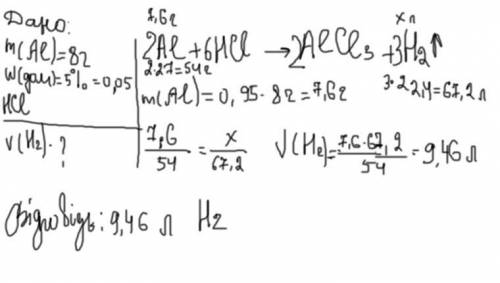 Дано:
m(Al)=8г
W(дом)=5%=0,05
HCl
V(H₂)-?
7,6г
x л
2Al+6HCl→2AlCl₃+3H₂↑
2·27=54г
3·22,4=67,2л
m(Al)=0,95·8г=7,6г
7,6/54=x/67,2
V(H₂)=7,6·67,2/54=9,46 л
Відповідь: 9,46 л H₂